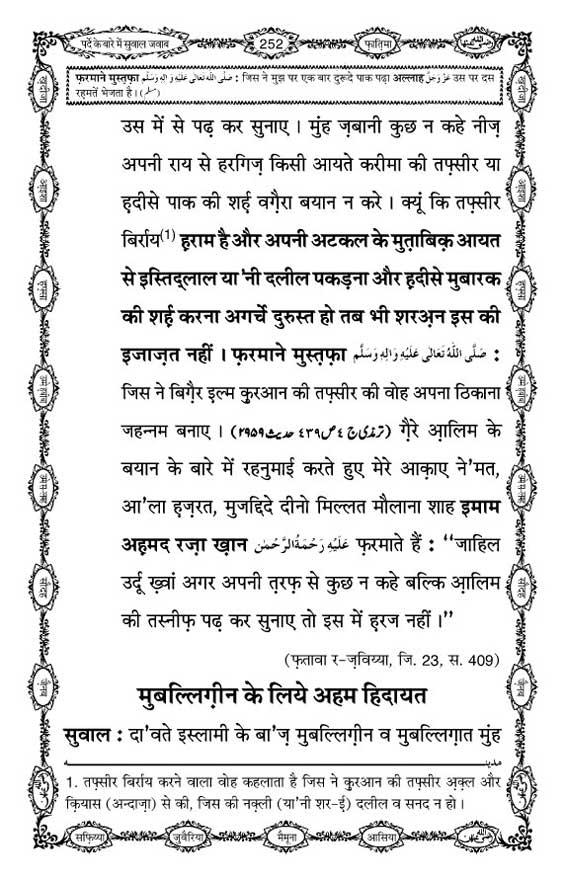 पर्दे के बारे में सुवाल जवाब
252
फ़ातिमा
फ़रमाने मुस्तफ़ा صَلَّى اللهُ تَعَالٰى عَلَيْهِ وَاٰلِهٖ وَسَلَّم : जिस ने मुझ पर एक बार दुरूदे पाक पढ़ा अल्लाह عَزَّوَجَلَّ उस पर दस
रहमतें भेजता है। (مسلم)
उस में से पढ़ कर सुनाए । मुंह ज़बानी कुछ न कहे नीज़
अपनी राय से हरगिज़ किसी आयते करीमा की तफ़्सीर या
ह़दीसे पाक की शर्ह़ वग़ैरा बयान न करे । क्यूं कि तफ़्सीर
बिर्राय(1) ह़राम है और अपनी अटकल के मुत़ाबिक़ आयत
से इस्तिद्लाल या'नी दलील पकड़ना और ह़दीसे मुबारक
की शर्ह़ करना अगर्चे दुरुस्त हो तब भी शरअ़न इस की
इजाज़त नहीं । फ़रमाने मुस्त़फ़ा صَلَّى اللهُ تَعَالٰى عَلَيْهِ وَاٰلِهٖ وَسَلَّم :
जिस ने बिग़ैर इल्म क़ुरआन की तफ़्सीर की वोह अपना ठिकाना
जहन्नम बनाए । (ترمذی ج ٤ ص ٤٣٩ حدیث ٢٩٥٩) ग़ैरे आ़लिम के
बयान के बारे में रहनुमाई करते हुए मेरे आक़ाए ने'मत,
आ'ला ह़ज़रत, मुजद्दिदे दीनो मिल्लत मौलाना शाह इमाम
अह़मद रज़ा ख़ान عَلَيْهِ رَحْمَةُ الرَّحْمٰن फ़रमाते हैं : ''जाहिल
उर्दू ख़्वां अगर अपनी त़रफ़ से कुछ न कहे बल्कि आ़लिम
की तस्नीफ़ पढ़ कर सुनाए तो इस में ह़रज नहीं ।''
(फ़तावा र-ज़विय्या, जि. 23, स. 409)
मुबल्लिग़ीन के लिये अहम हिदायत
सुवाल : दा'वते इस्लामी के बा'ज़ मुबल्लिग़ीन व मुबल्लिग़ात मुंह
مدینہ
1. तफ़्सीर बिर्राय करने वाला वोह कहलाता है जिस ने क़ुरआन की तफ़्सीर अ़क़्ल और
क़ियास (अन्दाज़ा) से की, जिस की नक़्ली (या'नी शर-ई) दलील व सनद न हो ।
सफ़िय्या
जुवैरिया
मैमूना
आसिया